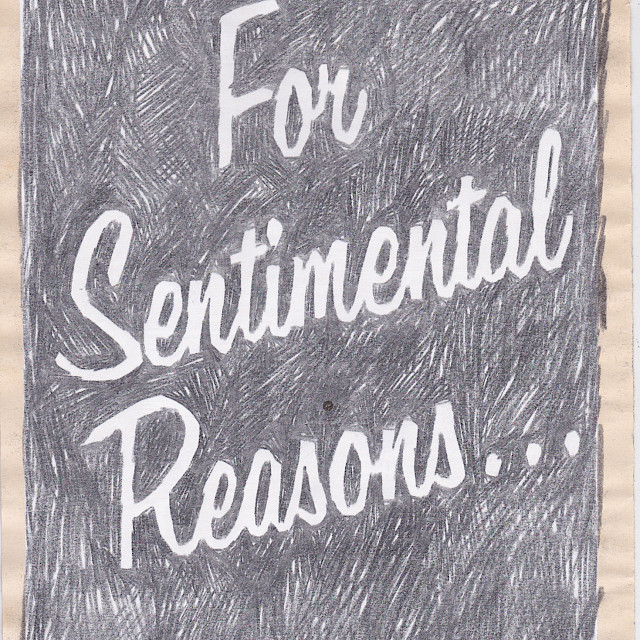 For
Sentimental
Reasons...